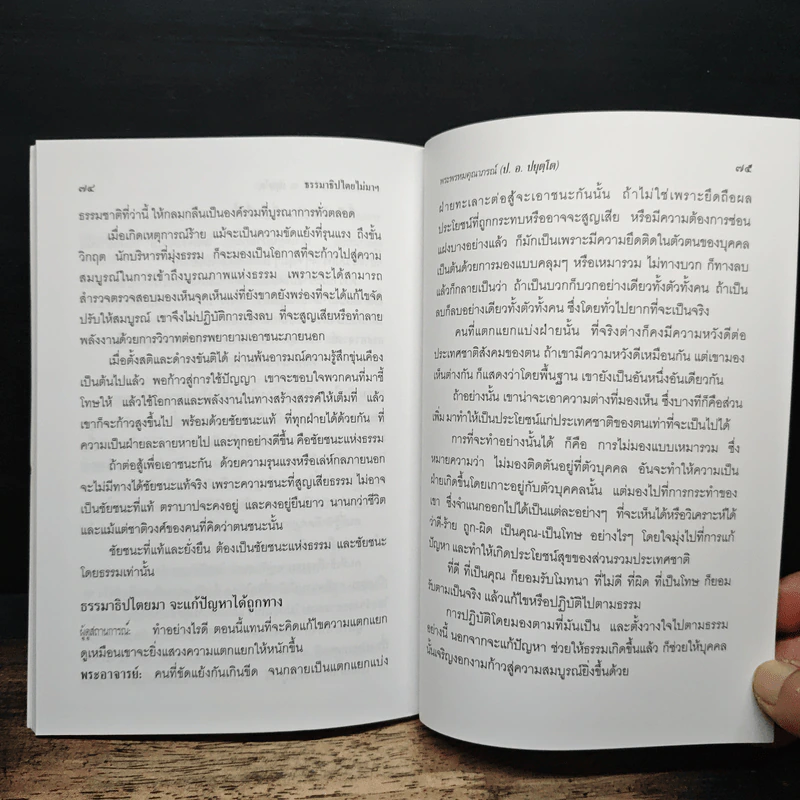 ๗๔
ธรรมาธิปไตยไม่มาฯ
ธรรมชาติที่ว่านี้ ให้กลมกลืนเป็นองค์รวมที่บูรณาการทั่วตลอด
เมื่อเกิดเหตุการณ์ร้าย แม้จะเป็นความขัดแย้งที่รุนแรง ถึงขั้น
วิกฤต นักบริหารที่มุ่งธรรม ก็จะมองเป็นโอกาสที่จะก้าวไปสู่ความ
สมบูรณ์ในการเข้าถึงบูรณภาพแห่งธรรม เพราะจะได้สามารถ
สำรวจตรวจสอบมองเห็นจุดเห็นแง่ที่ยังขาดยังพร่องที่จะได้แก้ไขจัด
ปรับให้สมบูรณ์ เขาจึงไม่ปฏิบัติการเชิงลบ ที่จะสูญเสียหรือทำลาย
พลังงานด้วยการวิวาทต่อกรพยายามเอาชนะภายนอก
เมื่อตั้งสติและดำรงขันติได้ ผ่านพ้นอารมณ์ความรู้สึกขุ่นเคือง
เป็นต้นไปแล้ว พอก้าวสู่การใช้ปัญญา เขาจะขอบใจพวกคนที่มาชี้
โทษให้ แล้วใช้โอกาสและพลังงานในทางสร้างสรรค์ให้เต็มที่ แล้ว
เขาก็จะก้าวสูงขึ้นไป พร้อมด้วยชัยชนะแท้ ที่ทุกฝ่ายได้ด้วยกัน ที่
ความเป็นฝ่ายละลายหายไป และทุกอย่างดีขึ้น คือชัยชนะแห่งธรรม
ถ้าต่อสู้เพื่อเอาชนะกัน ด้วยความรุนแรงหรือเล่ห์กลภายนอก
จะไม่มีทางได้ชัยชนะแท้จริง เพราะความชนะที่สูญเสียธรรม ไม่อาจ
เป็นชัยชนะที่แท้ ตราบาปจะคงอยู่ และคงอยู่ยืนยาว นานกว่าชีวิต
และแม้แต่ชาติวงศ์ของคนที่คิดว่าตนชนะนั้น
ชัยชนะที่แท้และยั่งยืน ต้องเป็นชัยชนะแห่งธรรม และชัยชนะ
โดยธรรมเท่านั้น
ธรรมาธิปไตยมา จะแก้ปัญหาได้ถูกทาง
ผู้ดูสถานการณ์: ทำอย่างไรดี ตอนนี้แทนที่จะคิดแก้ไขความแตกแยก
ดูเหมือนเขาจะยิ่งแสวงความแตกแยกให้หนักขึ้น
พระอาจารย์: คนที่ขัดแย้งกันเกินขีด จนกลายเป็นแตกแยกแบ่ง
พระพรหมคุณาภรณ์ (ป. อ. ปยุตฺโต)
๗๕
ฝ่ายทะเลาะต่อสู้จะเอาชนะกันนั้น ถ้าไม่ใช่เพราะยึดถือผล
ประโยชน์ที่ถูกกระทบหรืออาจจะสูญเสีย หรือมีความต้องการซ่อน
แฝงบางอย่างแล้ว ก็มักเป็นเพราะมีความยึดติดในตัวตนของบุคคล
เป็นต้นด้วยการมองแบบคลุมๆ หรือเหมารวม ไม่ทางบวก ก็ทางลบ
แล้วก็กลายเป็นว่า ถ้าเป็นบวกก็บวกอย่างเดียวทั้งตัวทั้งคน ถ้าเป็น
ลบก็ลบอย่างเดียวทั้งตัวทั้งคน ซึ่งโดยทั่วไปยากที่จะเป็นจริง
คนที่แตกแยกแบ่งฝ่ายนั้น ที่จริงต่างก็คงมีความหวังดีต่อ
ประเทศชาติสังคมของตน ถ้าเขามีความหวังดีเหมือนกัน แต่เขามอง
เห็นต่างกัน ก็แสดงว่าโดยพื้นฐาน เขายังเป็นอันหนึ่งอันเดียวกัน
ถ้าอย่างนั้น เขาน่าจะเอาความต่างที่มองเห็น ซึ่งบางทีก็คือส่วน
เพิ่ม มาทำให้เป็นประโยชน์แก่ประเทศชาติของตนเท่าที่จะเป็นไปได้
การที่จะทำอย่างนั้นได้ ก็คือ การไม่มองแบบเหมารวม ซึ่ง
หมายความว่า ไม่มองติดตันอยู่ที่ตัวบุคคล อันจะทำให้ความเป็น
ฝ่ายเกิดขึ้นโดยเกาะอยู่กับตัวบุคคลนั้น แต่มองไปที่การกระทำของ
เขา ซึ่งจำแนกออกไปได้เป็นแต่ละอย่างๆ ที่จะเห็นได้หรือวิเคราะห์ได้
ว่าดี-ร้าย ถูก-ผิด เป็นคุณ-เป็นโทษ อย่างไรๆ โดยใจมุ่งไปที่การแก้
ปัญหา และทำให้เกิดประโยชน์สุขของส่วนรวมประเทศชาติ
ที่ดี ที่เป็นคุณ ก็ยอมรับโมทนา ที่ไม่ดี ที่ผิด ที่เป็นโทษ ก็ยอม
รับตามเป็นจริง แล้วแก้ไขหรือปฏิบัติไปตามธรรม
การปฏิบัติโดยมองตามที่มันเป็น และตั้งวางใจไปตามธรรม
อย่างนี้ นอกจากจะแก้ปัญหา ช่วยให้ธรรมเกิดขึ้นแล้ว ก็ช่วยให้บุคคล
นั้นเจริญงอกงามก้าวสู่ความสมบูรณ์ยิ่งขึ้นด้วย